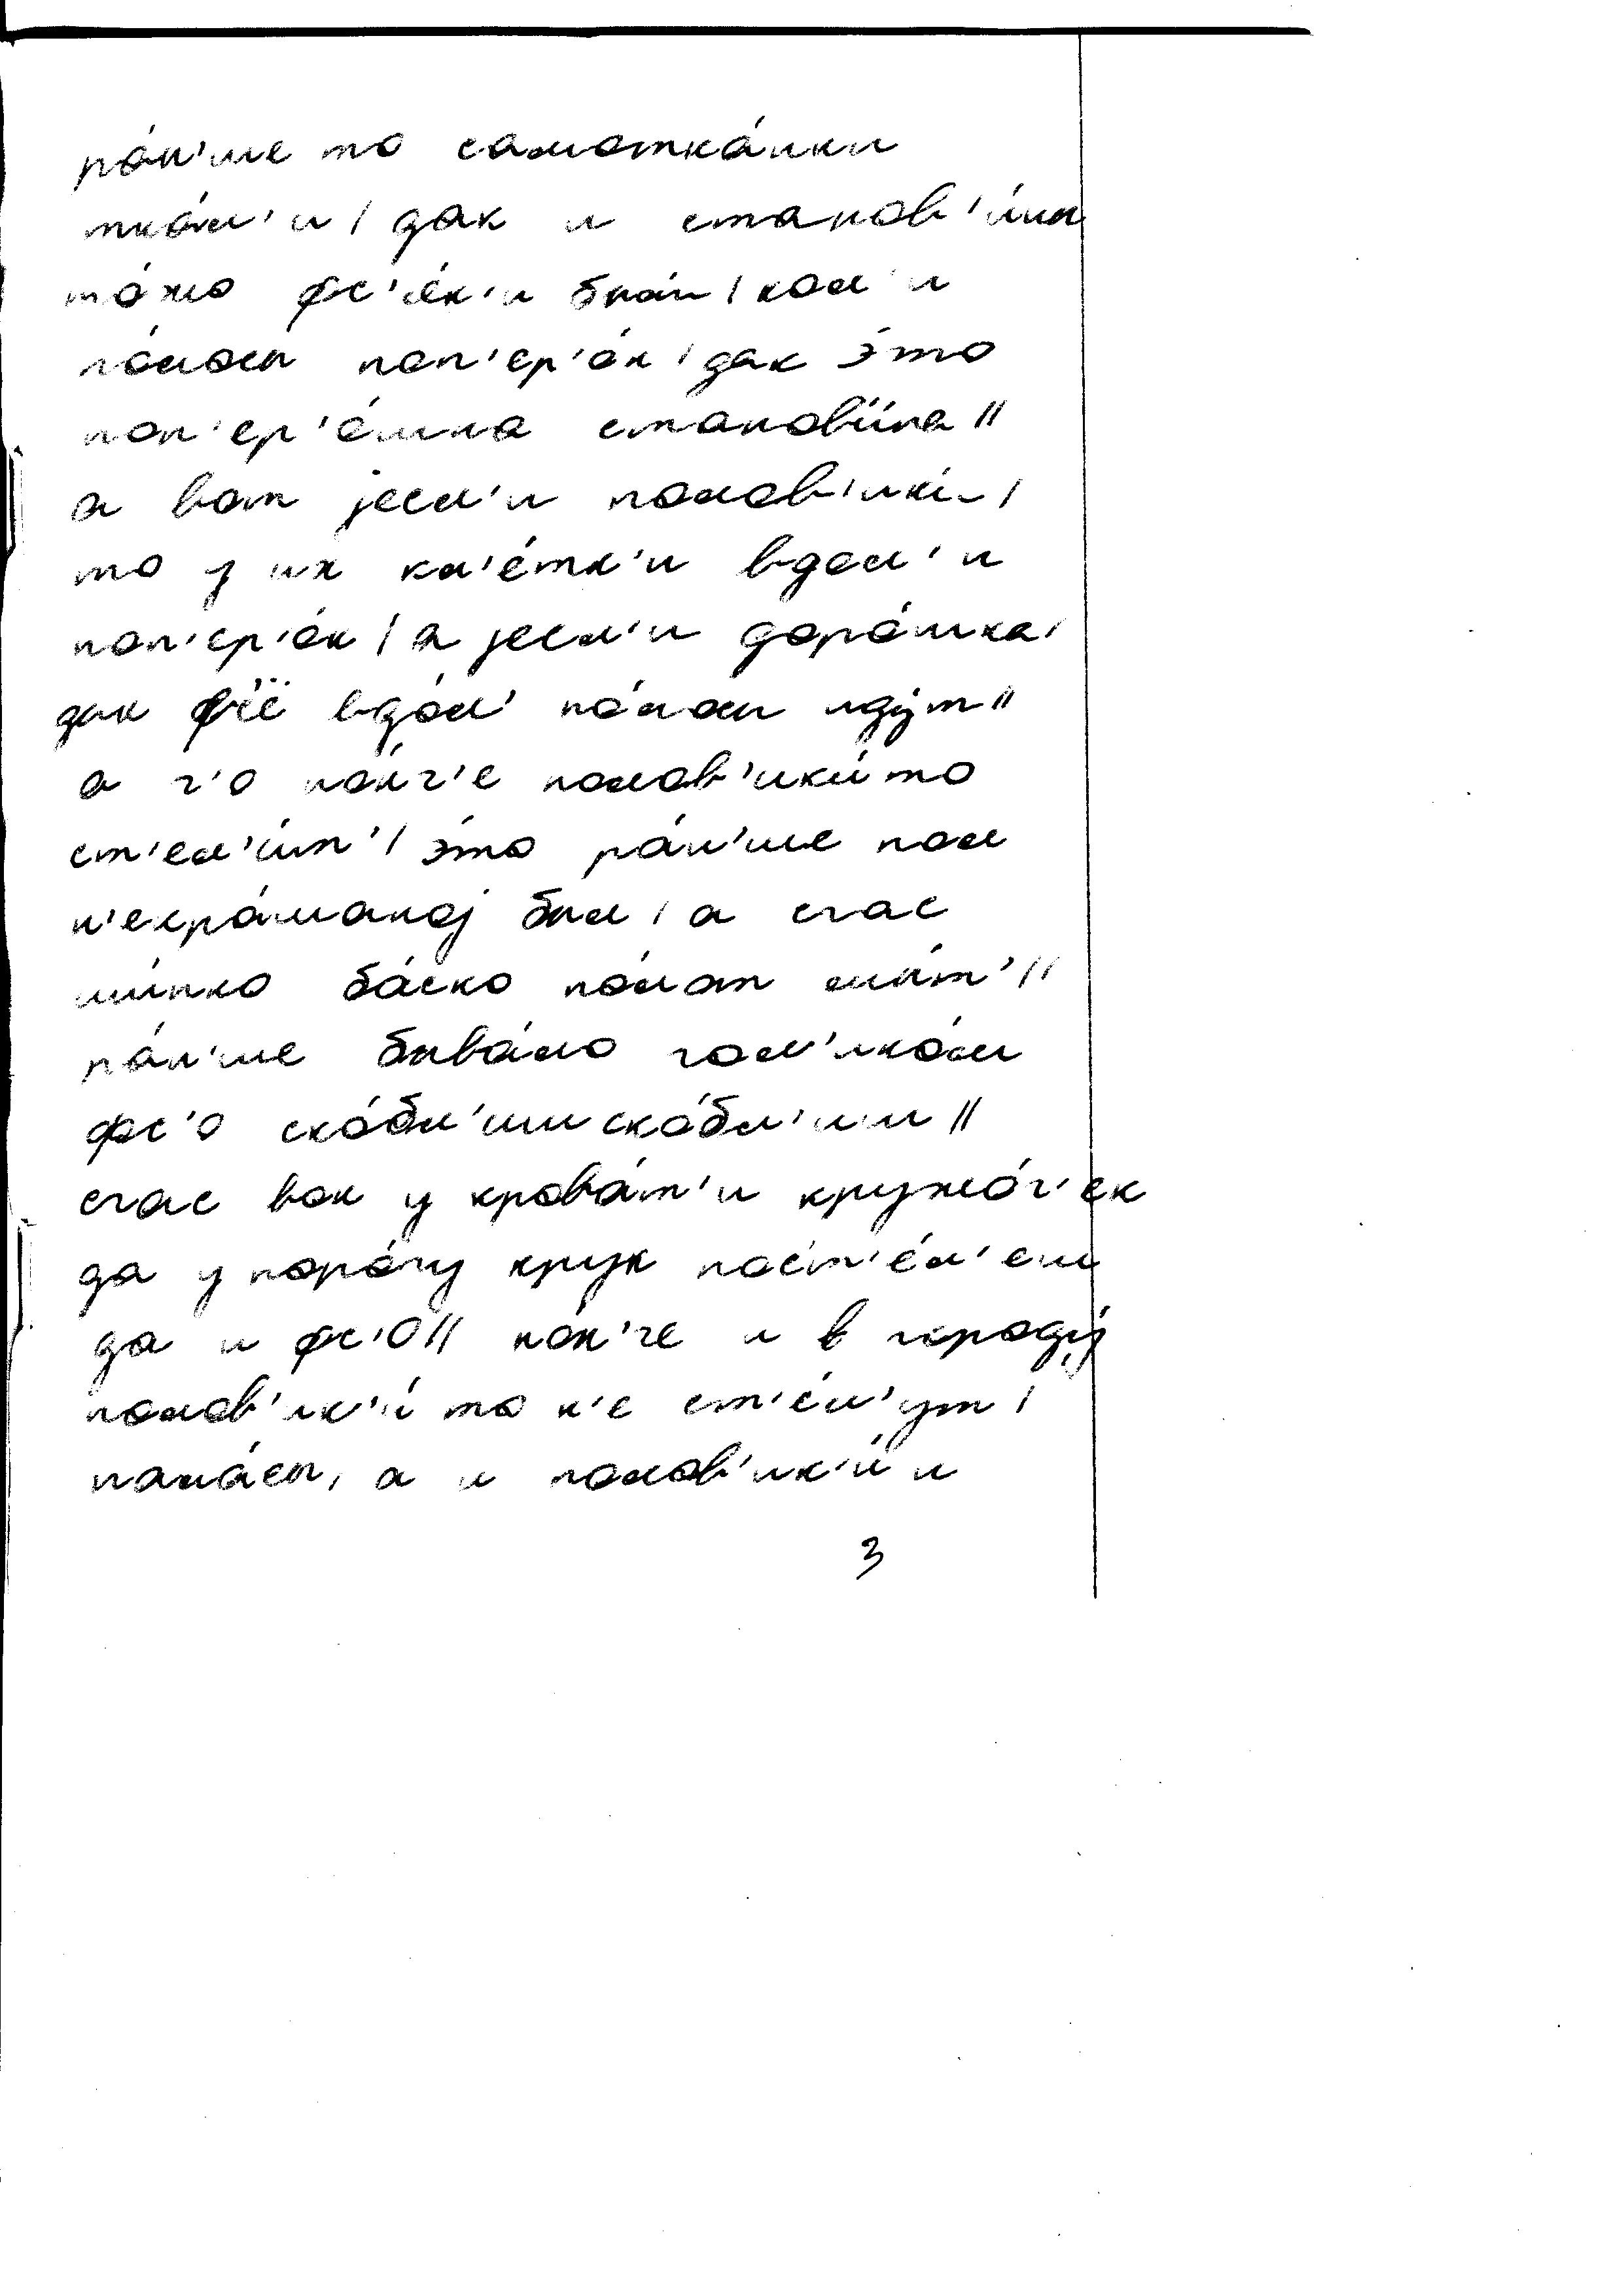 ра́н'ше то самотка́нки
тка́л'и / дак и станов'и́на
то́жо фс'а́к'и были́ / кол'и
по́лосы поп'ер'о́к / дак э́то
поп'ер'е́шна станов'и́на //
а вот јесл'и полов'ики́ /
то у их кл'е́тк'и вдол' и
поп'ер'о́к / а јесл'и доро́шка /
дак фс'е вдо́л' по́лосы иду́т //
а ч'о но́нч'е полов'ики́ то
ст'ел'и́т' / э́то ра́н'ше пол
н'екра́шаној был / а счас
ши́пко ба́ско по́лат мыт' //
ра́н'ше быва́ло гол'ико́м
фс'о ско́бл'иш ско́бл'иш //
счас вон у крова́т'и кружо́ч'ек
да у поро́гу крук пост'е́л'еш
да и фс'о // нон'че и в городу́
полов'ик'и́ то н'е ст'е́л'ут /
пала́сы, а и полов'ик'и́ и
3